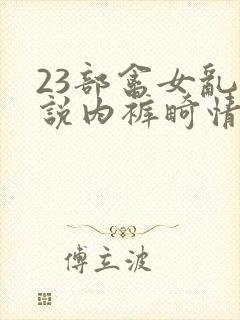 23部畲女亂
說内裤畸情
傅立波